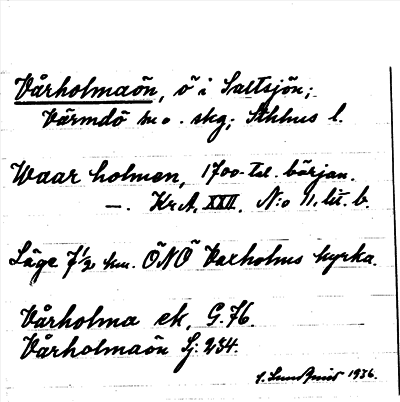 Vårholmaön, ö i Saltsjön;
Värmdö sn o. skg; Sthlms l.
Waar holmen, 1700-tal. början.
—. Kr.A. XXII. N:o 11. lit. b.
Läge 7½ km. ÖNÖ Vaxholms kyrka.
Vårholma ek, G.76.
Vårholmaön Sj: 234.
1936.